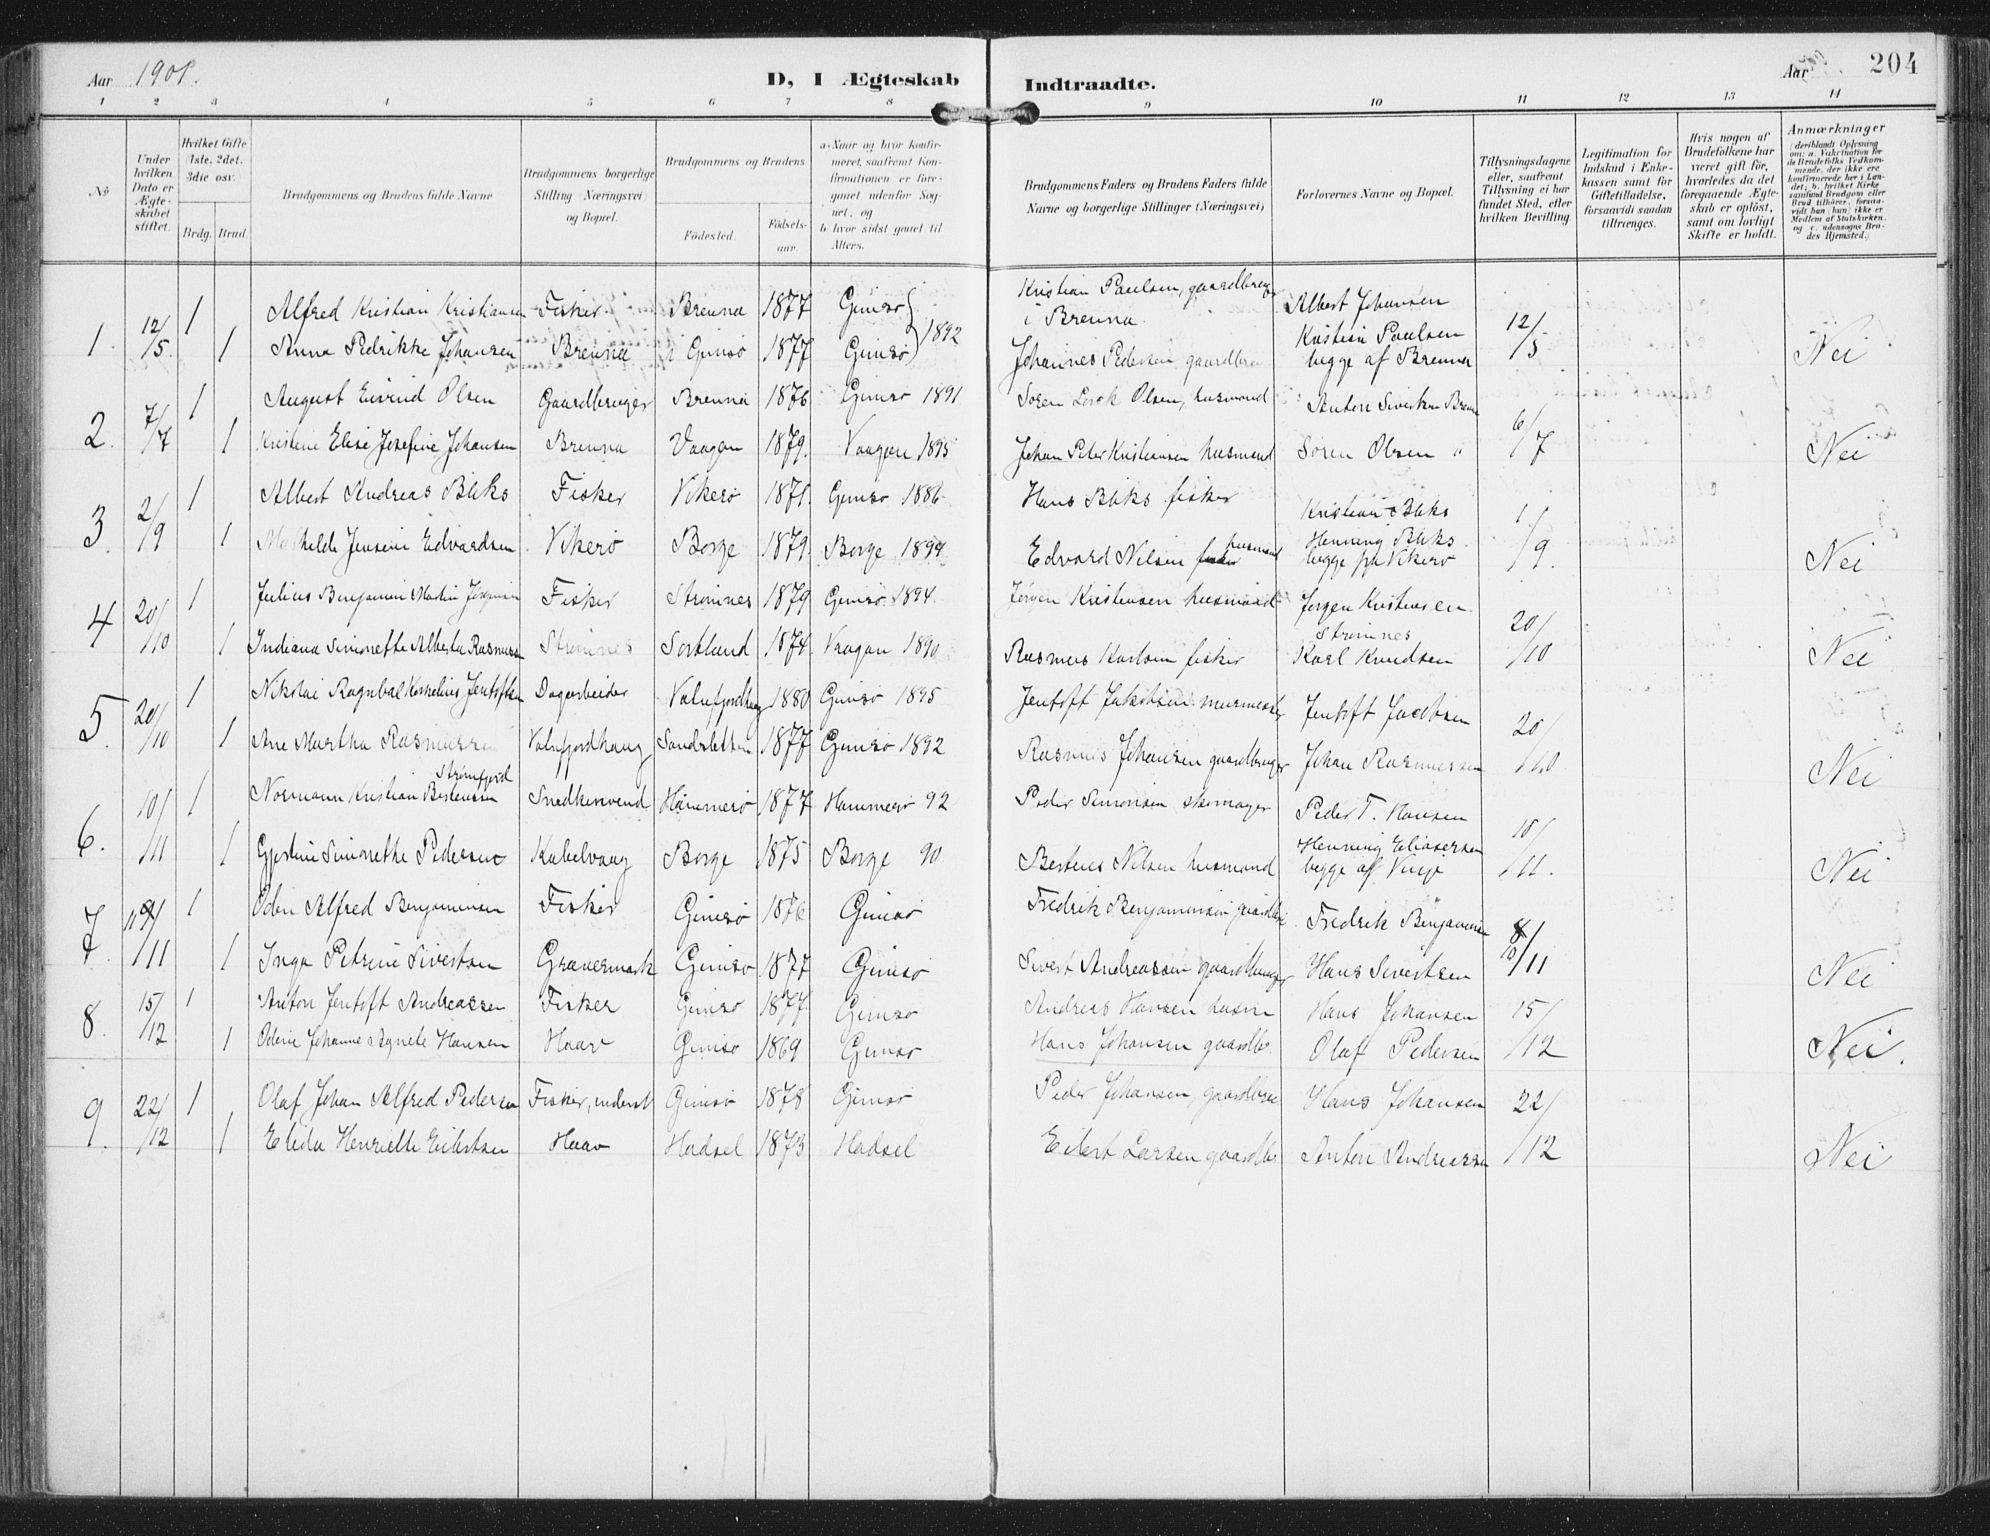 Aar 1901.
D, I Ægteskab Indtraadte.
Aar 204
1 2 3 4 5 6 7 8 9 10 11 12 13 14
No
Under hvilken Dato er Ægteskabet stiftet.
Hvilket Gifte (1ste, 2det, 3die osv.)
Brdg. Brud.
Brudgommens og Brudens fulde Navne
Brudgommens borgerlige Stilling (Næringsvei) og Bopæl.
Brudgommens og Brudens
Fødested. Fødselsaar.
a. Naar og hvor konfirmeret, saafremt Konfirmationen er foregaaet udenfor Sognet, og
b. hvor sidst gaaet til Alters.
Brudgommens Faders og Brudens Faders fulde Navne og borgerlige Stillinger (Næringsvei)
Forlovernes Navne og Bopæl.
Tillysningsdagene eller, saafremt Tillysning ei har fundet Sted, efter hvilken Bevilling.
Legitimation for Indskud i Enkekassen samt for Giftetilladelse, forsaavidt saadan tiltrænges.
Hvis nogen af Brudefolkene har været gift før, hvorledes da det foregaaende Ægteskab er opløst, samt om lovligt Skifte er holdt.
Anmærkninger (deriblandt Oplysning om: a. Vakcination for de Brudefolks Vedkommende, der ikke ere konfirmerede her i Landet; b. hvilket Kirkesamfund Brudgom eller Brud tilhører, forsaavidt han (hun) ikke er Medlem af Statskirken, og c. udensogns Brudes Hjemsted.)
1. 12/5. 1 Alfred Kristian Kristiansen Fisker Brenna 1877 Gimsø Kristian Paulsen, gaardbruger i Brenna Albert Johansen 12/5
1 Anna Pedrikke Johansen Brenna i Gimsø 1877 Gimsø } 1892 Johannes Pedersen gaardbru Kristian Paulsen begge af Brenna Nei
2. 7/7 1 August Eivind Olsen Gaardbruger Brenna 1876 Gimsø 1891 Søren Olsen, husmand Anton Sivertsen Brenna 6/7
1 Kristine Elise Josefine Johansen Brenna Vaagan 1879. Vaagan 1895 Johan Peter Kristiansen husmand Søren Olsen " Nei
3. 2/9 1 Albert Andreas Bliks Fisker Vikerø 1871. Gimsø 1886 Hans Bliks fisker Kristian Bliks 1/9.
1 Jensine Edvardsen Vikerø Borge 1879. Borge 1894. Edvard Nilsen husmand Henning Bliks begge på Vikerø Nei
4 20/10 1 Julius Benjamin Martin Fisker Strømnes 1879 Gimsø 1894. Jørgen Kristensen husmand Jørgen Kristensen Strømnes 20/10
1 Indiana Simonette Alberta Rasmussen Strømnes Sortland 1874. Vaagan 1890 Rasmus Karlsen fisker Karl Knudsen Nei
5. 20/10 1 Nikolai Ragnval Kornelius Jentoftsen Dagarbeider Valufjordhaug 1880 Gimsø 1895 Jentoft Jakobsen murmester Jentoft Jacobsen 20/10
1 Ane Martha Rasmussen Valufjordhaug Sandsletten 1877 Gimsø 1892 Rasmus Johansen gaardbruger Johan Rasmussen Nei
6. 10/11 1 Normann Kristian Bertensen Strømfjord Snedkersvend Hammerø 1877 Hammerø 92 Peder Simonsen skomager Peder T. Hansen 10/11.
1 Gjertine Simonethe Pedersen Kabelvaag Borge 1875 Borge 90 Berteus Nilsen husmand Henning Eliasersen begge af Vinje Nei
7. /11 1 Odin Alfred Benjaminsen Fisker Gimsø 1876 Gimsø Fredrik Benjaminsen gaardbr Fredrik Benjaminsen 10/11
1 Inga Petrine Sivertsen Gravermark Gimsø 1877 Gimsø Sivert Andreassen gaardbruger Hans Sivertsen Nei
8. 15/12 1 Anton Jentoft Andreassen Fisker Gimsø 1877. Gimsø Andreas Hansen husm Hans Johansen 15/12
1 Odine Johanne Agnete Hansen Haav Gimsø 1869 Gimsø Hans Johansen gaardbr. Olaf Pedersen Nei.
9. 22/12 1 Olaf Johan Alfred Pedersen Fisker, underst Gimsø 1878 Gimsø Peder Johansen, gaardbru Hans Johansen 22/12
1 Elida Henriette Eilertsen Haav Hadsel 1873 Hadsel Eilert Larsen gaardbr Anton Andreassen Nei